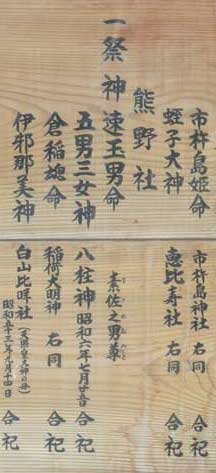 市杵島姫命
蛭子大神
熊野社
一祭神 速玉男命
五男三女神
倉稲魂命
伊邪那美神
市杵島神社 右同 合祀
恵比寿社 右同 合祀
素佐之男尊
八柱神 昭和六年七月廿五日 合祀
稲荷大明神 右同 合祀
白山比咩社 (天照皇大神の母) 昭和五十三年九月十四日 合祀